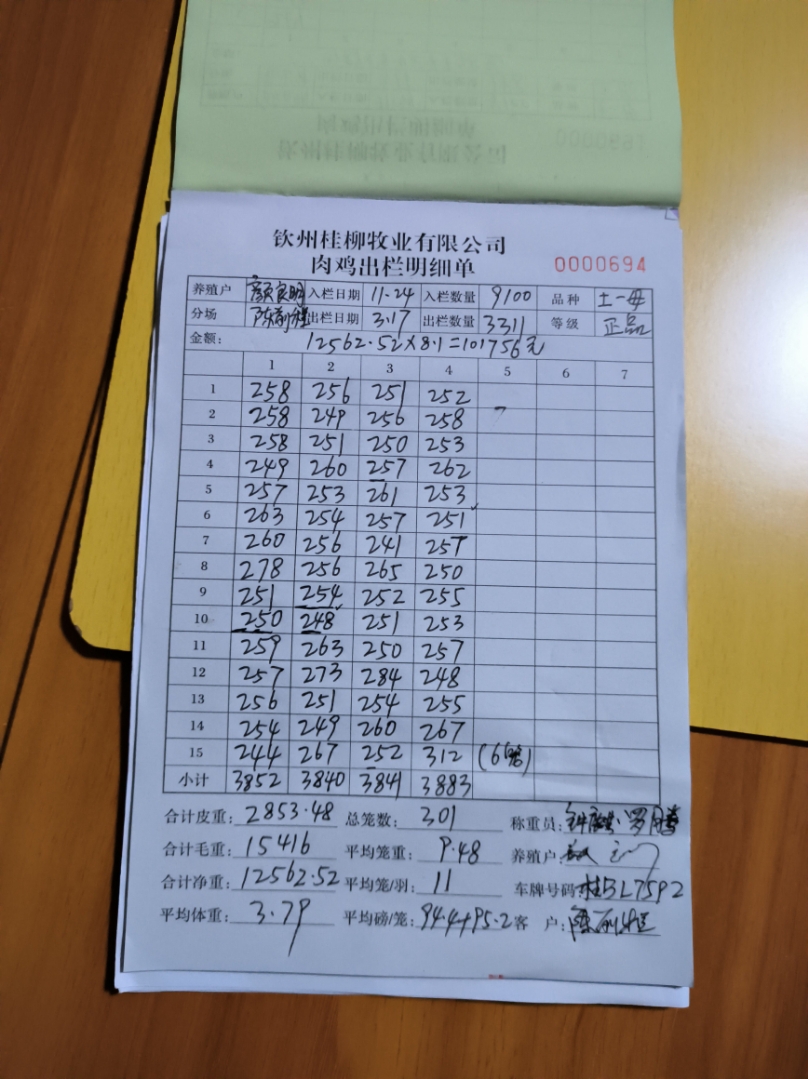 钦州桂柳牧业有限公司
肉鸡出栏明细单 0000694
养殖户 颜良明 入栏日期 11.24 入栏数量 9100 品种 土一母
分场 陈前程 出栏日期 3.17 出栏数量 3311 等级 正品
金额: 12562.52×8.1=101756元
1 2 3 4 5 6 7
1 258 256 251 252
2 258 249 256 258
3 258 251 250 253
4 249 260 257 262
5 257 253 261 253
6 263 254 257 251
7 260 256 241 257
8 278 256 265 250
9 251 254 252 255
10 250 248 251 253
11 259 263 250 257
12 257 273 284 248
13 256 251 254 255
14 254 249 260 267
15 244 267 252 312 (6笼)
小计 3852 3840 3841 3883
合计皮重: 2853.48 总笼数: 301 称重员:
合计毛重: 15416 平均笼重: 9.48 养殖户:
合计净重: 12562.52 平均笼/羽: 11 车牌号码: 桂BL7592
平均体重: 3.79 平均磅/笼: 94.4+95.2 客户: 陈前程